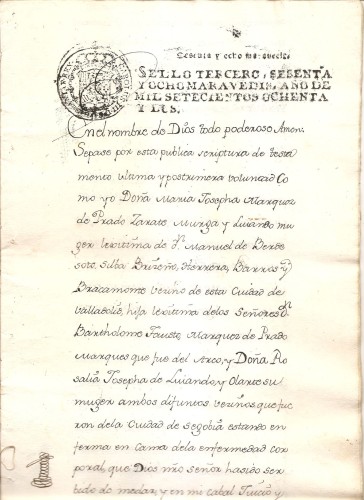 Sesenta y ocho maravedis.
SELLO TERCERO, SESENTA
Y OCHO MARAVEDIS, AÑO DE
MIL SETECIENTOS OCHENTA
Y DOS.
En el nombre de Dios todo poderoso Amen.
Sepase por esta publica scriptura de testa
mento ultima y postrimera voluntad Co
mo yo Doña Maria Josepha Marquez
de Prado Zarate Murga y Luiando mu
ger lexitima de Dn. Manuel de Berde
soto, Silba Briseño, Herrera, Barros y
Bracamonte vecino de esta Ciudad de
Valladolid, hija lexitima de los Señores Dn.
Bartholome Fausto, Marquez de Prado
Marques que fue del Arco, y Doña Ro
salia Josepha de Luiando, y Olarte su
muger ambos difuntos vecinos que fue
ron de la Ciudad de Segobia estando en
ferma en Cama de la enfermedad cor
poral, que Dios nro señor ha sido ser
bido de me dar, y en mi cabal Juicio y